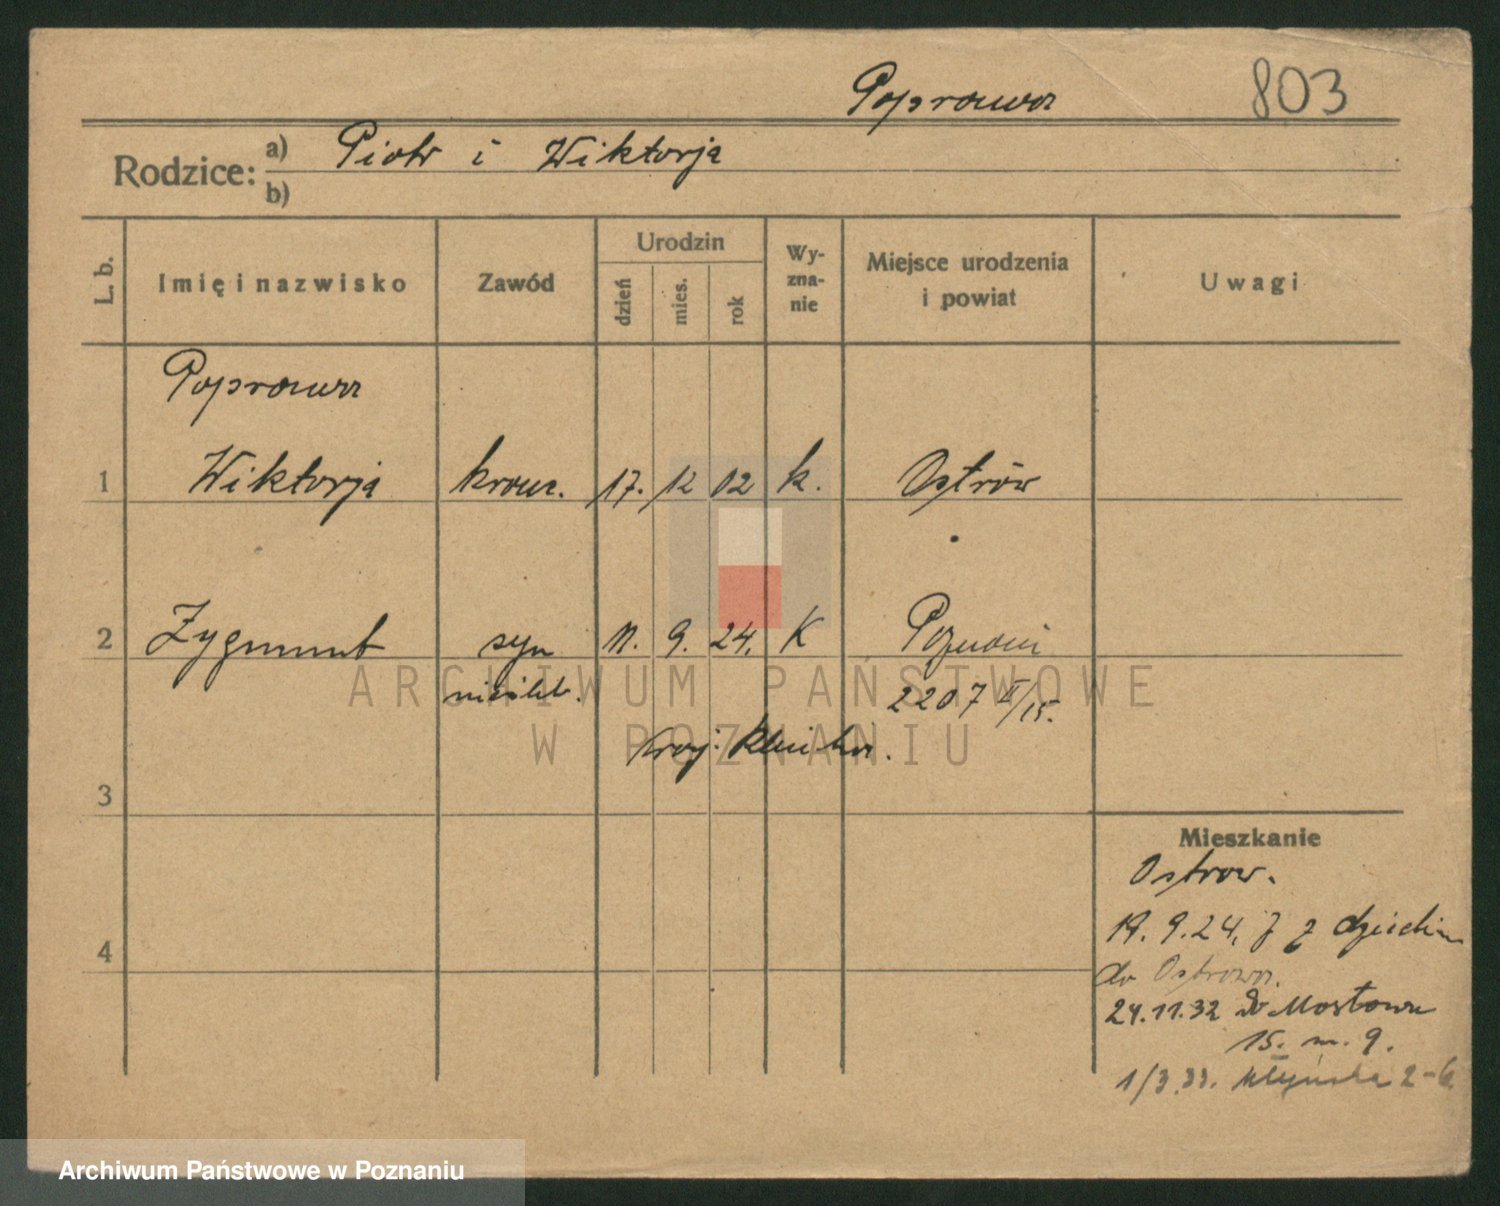 Poprawa 803
Rodzice: a) Piotr i Wiktorja
b)
L. b. Imię i nazwisko Zawód Urodzin dzień mies. rok Wyznanie Miejsce urodzenia i powiat Uwagi
Poprawa
1 Wiktorja kraw. 17. 12 02 k. Ostrów
2 Zygmunt syn 11. 9. 24. K Poznań
nieślub. 2207 II/15.
3
Mieszkanie
Ostrow.
4 19. 9. 24. z dzieckiem
do Ostrowa.
24.11.32 do Mostowa
15. m. 9.
1/3.33. Młyńska 2-6
ARCHIWUM PAŃSTWOWE
W POZNANIU
Archiwum Państwowe w Poznaniu